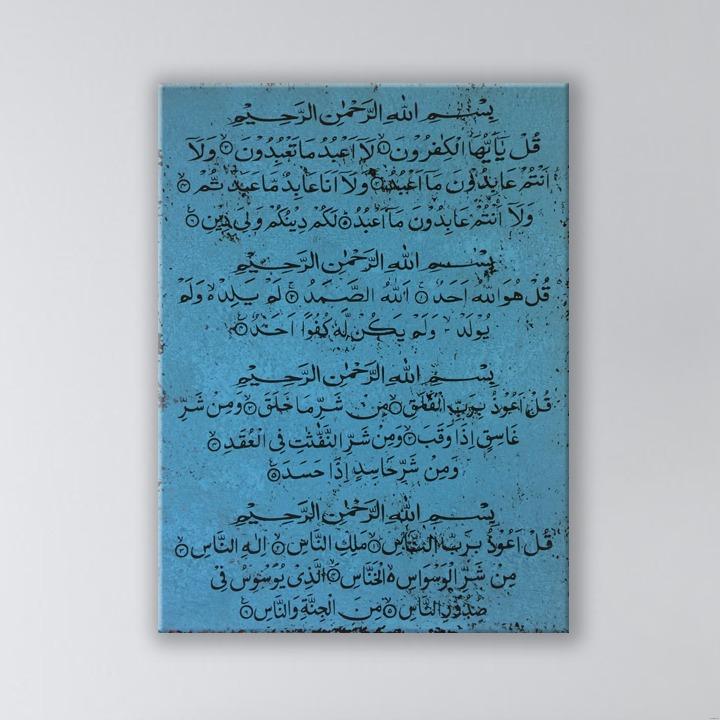 بِسْمِ اللهِ الرَّحْمٰنِ الرَّحِيْمِ
قُلْ يَآ اَيُّهَا الْكٰفِرُوْنَ ۝١ لَآ اَعْبُدُ مَا تَعْبُدُوْنَ ۝٢ وَلَآ
اَنْتُمْ عَابِدُوْنَ مَآ اَعْبُدُ ۝٣ وَلَآ اَنَا عَابِدٌ مَا عَبَدْتُّمْ ۝٤
وَلَآ اَنْتُمْ عَابِدُوْنَ مَآ اَعْبُدُ ۝٥ لَكُمْ دِيْنُكُمْ وَلِيَ دِيْنِ ۝٦
بِسْمِ اللهِ الرَّحْمٰنِ الرَّحِيْمِ
قُلْ هُوَ اللهُ اَحَدٌ ۝١ اَللهُ الصَّمَدُ ۝٢ لَمْ يَلِدْ ۝٣ وَلَمْ
يُوْلَدْ وَلَمْ يَكُنْ لَهٗ كُفُوًا اَحَدٌ ۝
بِسْمِ اللهِ الرَّحْمٰنِ الرَّحِيْمِ
قُلْ اَعُوْذُ بِرَبِّ الْفَلَقِ ۝١ مِنْ شَرِّ مَا خَلَقَ ۝٢ وَمِنْ شَرِّ
غَاسِقٍ اِذَا وَقَبَ ۝٣ وَمِنْ شَرِّ النَّفّٰثٰتِ فِى الْعُقَدِ ۝٤
وَمِنْ شَرِّ حَاسِدٍ اِذَا حَسَدَ ۝٥
بِسْمِ اللهِ الرَّحْمٰنِ الرَّحِيْمِ
قُلْ اَعُوْذُ بِرَبِّ النَّاسِ ۝١ مَلِكِ النَّاسِ ۝٢ اِلٰهِ النَّاسِ ۝٣
مِنْ شَرِّ الْوَسْوَاسِ ۝ الْخَنَّاسِ ۝٤ الَّذِى يُوَسْوِسُ فِى
صُدُوْرِ النَّاسِ ۝٥ مِنَ الْجِنَّةِ وَالنَّاسِ ۝٦